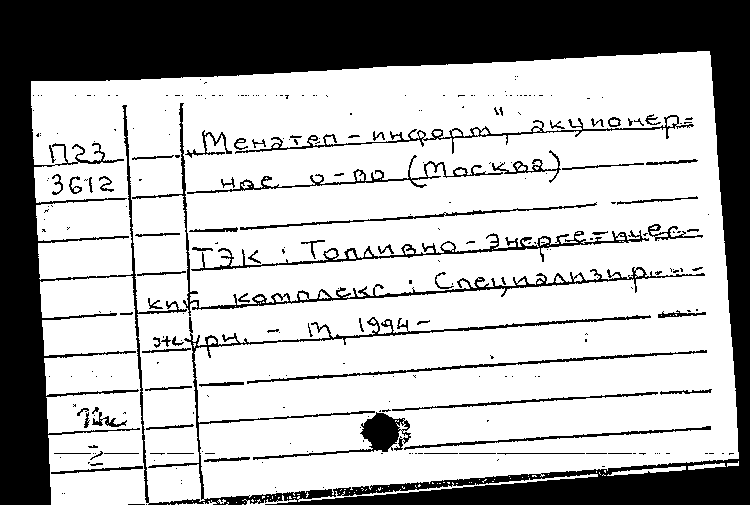 П23
3612
„Менатеп-информ", акционер-
ное о-во (Москва)
ТЭК: Топливно-энергетичес-
кий комплекс: Специализир.
журн. - М., 1994-
2